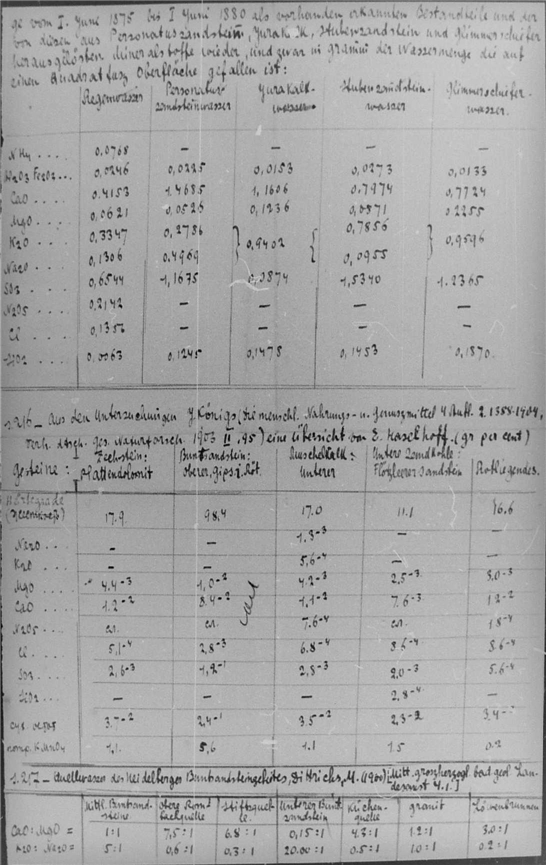 ge vom I. Juni 1875 bis I Juni 1880 als vorhanden erkannten Bestandteile und der
von diesen aus Personatussandstein, Yurak Ik, Stubenzandstein und Glimmerschiefer
herausgelösten mineralstoffe wieder, und zwar in gramm der Wassermenge die auf
einen Quadratfusz Oberfläche gefallen ist:
Regenwasser Personatus zandsteinwasser Yurakalk-wasser Stubenzandstein-wasser Glimmerschiefer-wasser.
NH4 .... 0,0768 — — — —
Fe2O3... 0,0246 0,0225 0,0153 0,0273 0,0133
CaO .... 0.4153 1.4685 1,1606 0,7974 0,7724
MgO .... 0,0621 0,0526 0,1236 0,0871 0.2255
K2O .... 0,3347 0,2786 } 0,9402 { 0,7856 } 0,9596
Na2O .... 0,1306 0,4969 0,0955
SO3 .... 0,6544 1,1675 0,0874 1,5340 1.2365
N2O5 ... 0,2142 — — — —
Cl .... 0,1356 — — — —
SiO2 .... 0,0063 0,1245 0,1478 0,1453 0,1870.
1.216_ Aus den Untersuchungen J. Königs (Die menschl. Nahrungs- u. Genuszmittel 4 Aufl. 2. 1388-1404,
Verh. dtsch. ges. Naturforsch. 1903 II, 95) eine übersicht von E. Haselhoff. (gr per cent)
Gesteine: Zechstein: Plattendolomit Buntsandstein: oberer, Gips i. Röt. Muschelkalk: Unterer Untere Flözleerer Sandstein Rotliegendes.
Härtegrade 17.9 98,4 17.0 11.1 16.6
Na2O .... 1,3-3 — —
K2O .... — — 5,6-4 — —
MgO .... 4,4-3 1,0-2 4.2-3 2,5-3 3.0-3
CaO .... 1.2-2 8.4-2 1,1-2 7,6-3 1,2-2
N2O5 ... 7.6-4 1,8-4
Cl .... 5,1-4 2,8-3 6.8-4 8.6-4 8.6-4
SO3 .... 2,6-3 1,2-1 2,8-3 2.0-3 5.6-4
SiO2 ... — — — 2,8-4 —
3.7-2 2,4-1 3.5-2 2,3-2
KMnO4 1,1. 5,6 1.1 1.5 0.2
1.217_ Quellwasser des Heidelberger Buntsandsteingebietes, Dittrich, M. (1900) [Mitt. groszherzogl. bad. geol. Lan-
desanst 4.1.]
Mittl. Buntsand-steine obere quelle Stiftsquel-le. Unterer Bunt zandstein Küchen-quelle granit Löwenbrunnen
CaO:MgO = 1:1 7,5:1 6.8:1 0,15:1 4.2:1 1.2:1 3.0:1
K2O:Na2O= 5:1 0,6:1 0,3:1 20.00:1 0.5:1 10:1 0.2:1